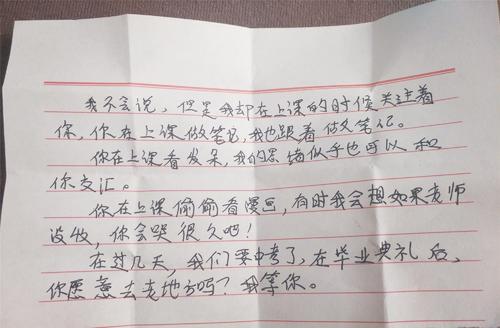 我不会说，但是我却在上课的时候关注着
你，你在上课做笔记，我也跟着做笔记。
你在上课看发呆，我的思绪似乎也可以和
你交汇。
你在上课偷偷看漫画，有时我会想如果老师
没收，你会哭很久吧！
在过几天，我们要中考了，在毕业典礼后，
你愿意去老地方吗？我等你。